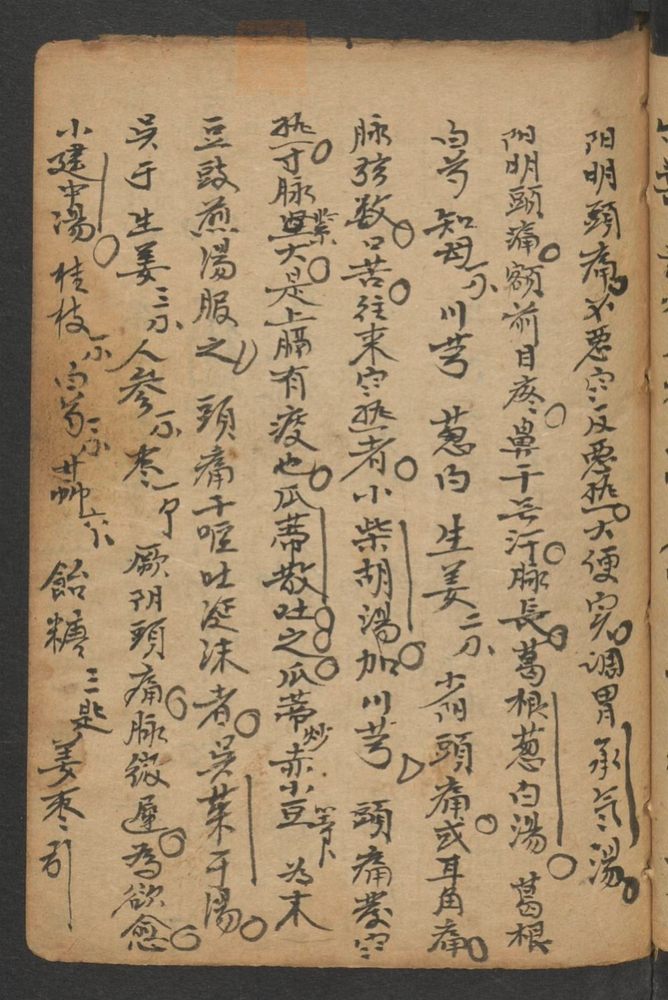 阳明頭痛。不悪寒反悪热。大便实。调胃承气湯。
阳明頭痛。額前目疼。鼻干无汗。脉長。葛根葱白湯。葛根
白芍 知母 川芎 葱白 生姜二 少阳頭痛或耳角痛。
脉弦数。口苦。往来寒热者。小柴胡湯。加川芎 頭痛發寒
热。寸脉紧大。是上膈有痰也。瓜蒂散吐之。瓜蒂炒 赤小豆等分 为末
豆豉煎湯服之 頭痛干呕吐涎沫者。吴茱于湯。
吴于 生姜三 人参 枣一个 厥阴頭痛。脉微遲。為欲愈。
小建中湯。桂枝 白芍 甘艸 飴糖三匙 姜枣引